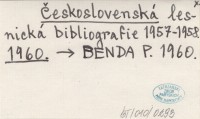 Československá les-
nická bibliografie 1957-1958
1960. → BENDA P. 1960.